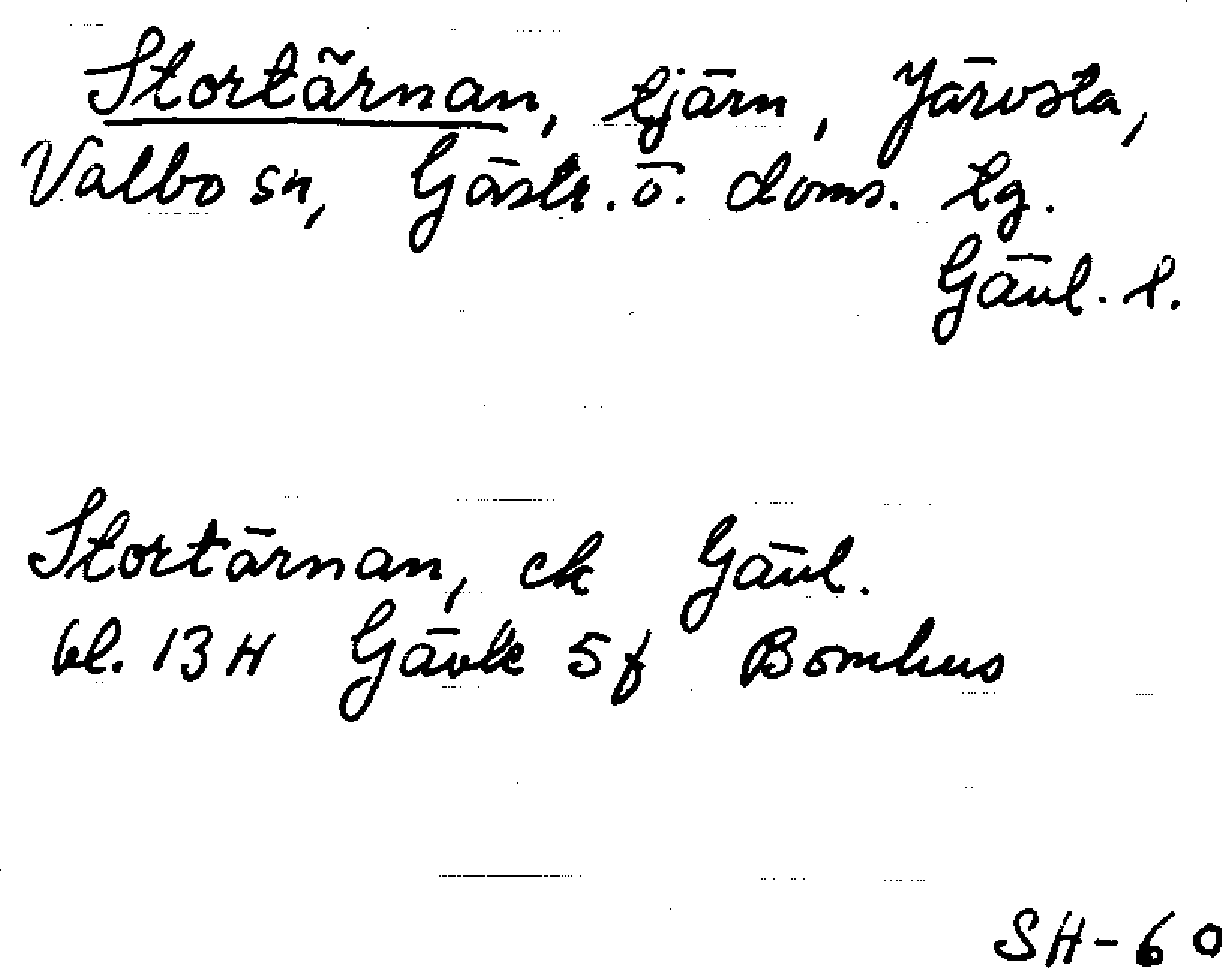 Stortärnan, tjärn, Järvsta,
Valbo sn, Gästr. ö. doms. tg.
Gävl. l.
Stortärnan, ek Gävl.
bl. 13H Gävle 5f Bomhus
SH-60